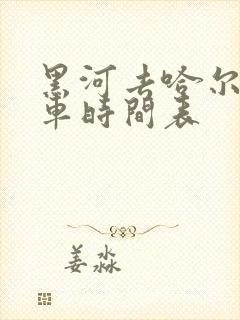 黑河去哈尔
車時間表
姜淼